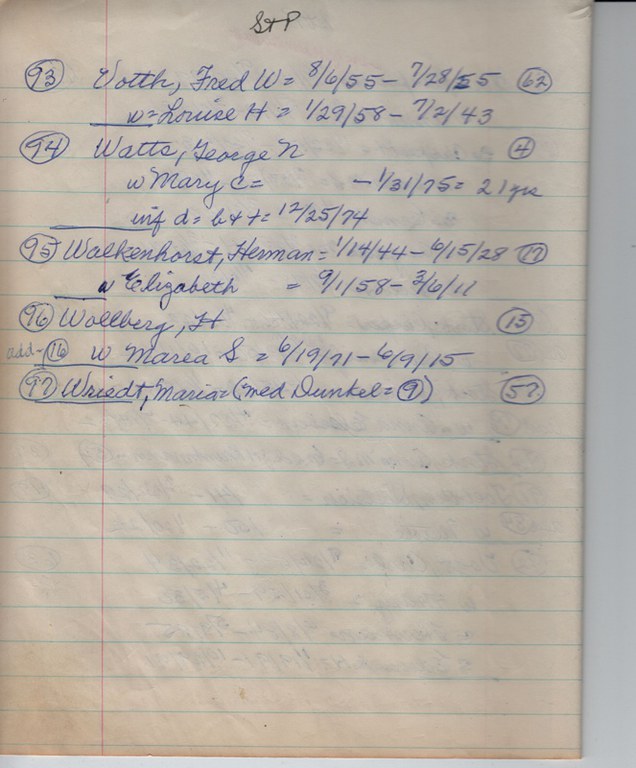 S+P
93 Votth, Fred W = 8/6/55 - 7/28/55 62
w = Louise H = 1/29/58 - 7/2/43
94 Watts, George N 4
w Mary C = - 1/31/75 = 21 yrs
inf d = b + t = 12/25/74
95 Walkenhorst, Herman = 1/14/44 - 6/15/28 17
w Elizabeth = 9/1/58 - 3/6/11
96 Wollberg, H 15
add - 16 w Marea S = 6/19/71 - 6/9/15
97 Wriedt, Maria = (med Dunkel = 9) 57